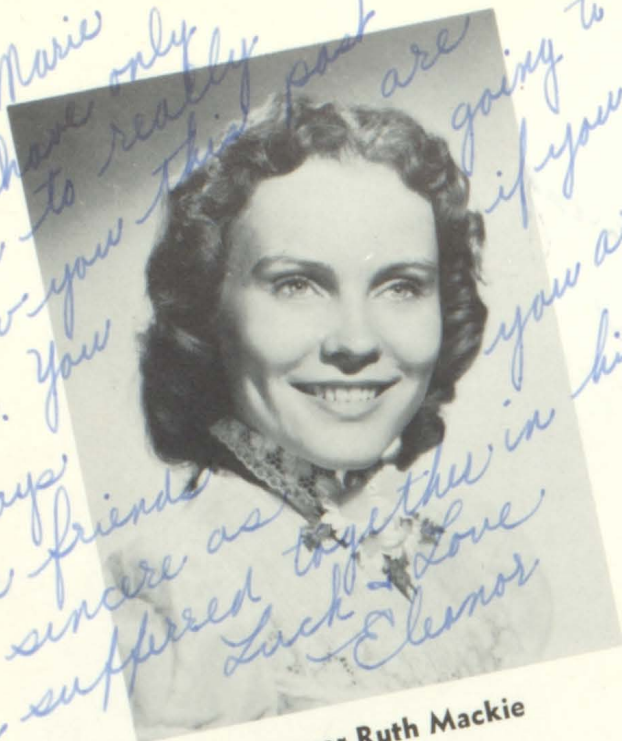 Marie
have only
to really
you this past
are
going to
You
if you
friends
you
sincere as
suffered together in
Luck & Love
Eleanor
Ruth Mackie